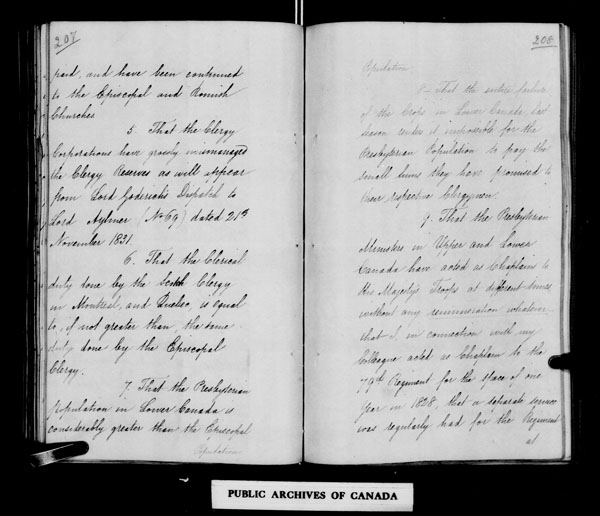 207
paid, and have been continued
to the Episcopal and Romish
Churches
5. That the Clergy
Corporations have grossly mismanaged
the Clergy Reserves as will appear
from Lord Goderich's Dispatch to
Lord Aylmer (No 69) dated 21st
November 1831.
6. That the Clerical
duty done by the Scotch Clergy
in Montreal, and Quebec, is equal
to, if not greater than, the same
duty done by the Episcopal
Clergy.
7. That the Presbyterian
Population in Lower Canada is
considerably greater than the Episcopal
Population
208
Population
8. That the entire failure
of the Crops in Lower Canada last
season renders it impossible for the
Presbyterian Population to pay the
small sums they have promised to
their respective Clergymen.
9. That the Presbyterian
Ministers in Upper and Lower
Canada have acted as Chaplains to
His Majesty's Troops at different times
without any remuneration whatever
that I in connection with my
Colleague acted as Chaplain to the
79th Regiment for the space of one
year in 1828, that a separate service
was regularly had for the Regiment
at
PUBLIC ARCHIVES OF CANADA